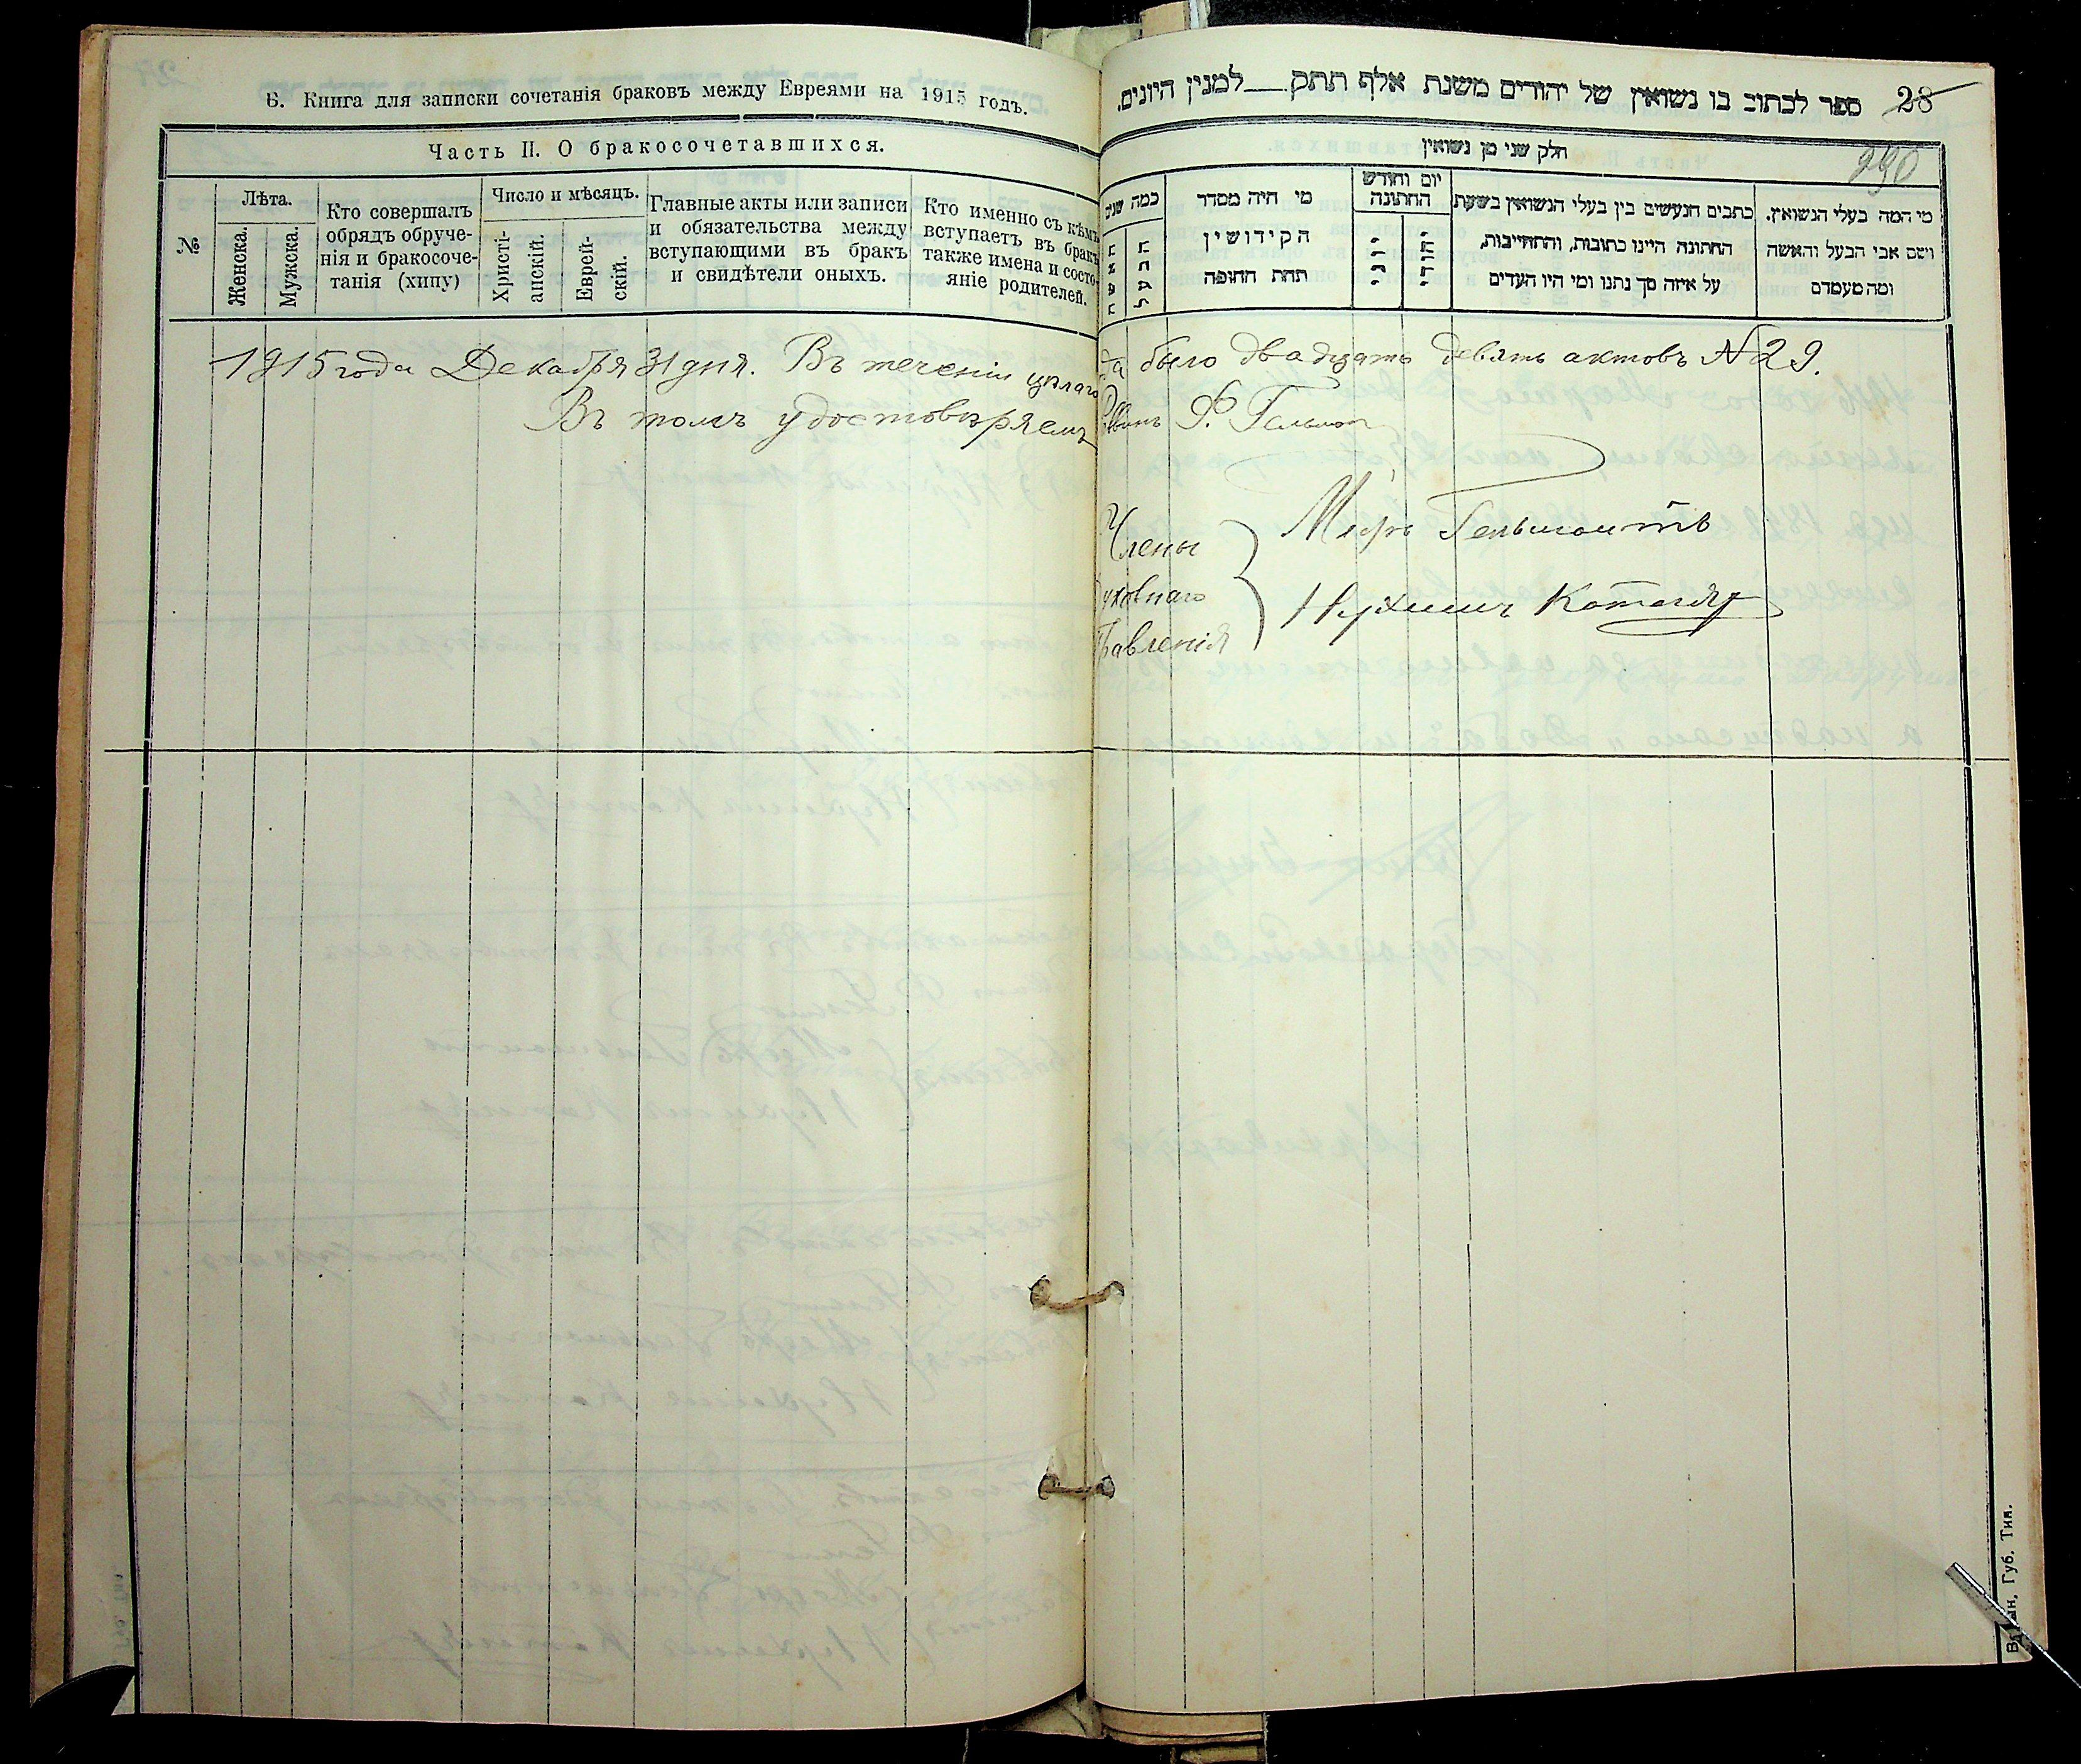 Б. Книга для записки сочетанія браковъ между Евреями на 1915 годъ.
Часть II. О бракосочетавшихся.
№
Лѣта.
Женска.
Мужска.
Кто совершалъ
обрядъ обруче-
нія и бракосоче-
танія (хипу)
Число и мѣсяцъ.
Христі-
анскій.
Еврей-
скій.
Главные акты или записи
и обязательства между
вступающими въ бракъ
и свидѣтели оныхъ.
Кто именно съ кѣмъ
вступаетъ въ бракъ
также имена и состо-
яніе родителей.
ספר לכתוב בו נשואין של יהודים משנת אלף תתק למנין היונים.
28
290
חלק שני מן נשואין
מי המה בעלי הנשואין.
ושם אבי הבעל והאשה
ומה מעמדם
כתבים הנעשים בין בעלי הנשואין בשעת
החתונה היינו כתובות, והתחייבות,
על איזה סך נתנו ומי היו העדים
יום וחודש
החתונה
יהודי
יוני
מי היה מסדר
הקידושין
תחת החופה
כמה שנים
הבעל
האשה
1915 года Декабря 31 дня. Въ теченіи цѣлаго
да было двадцать девять актовъ N 29.
Въ томъ удостовѣряемъ
Ф. Гельм
Члены
уховнаго
Правленія
Меръ Гельмонтъ
Нухимъ Котляр
Губ. Тип.